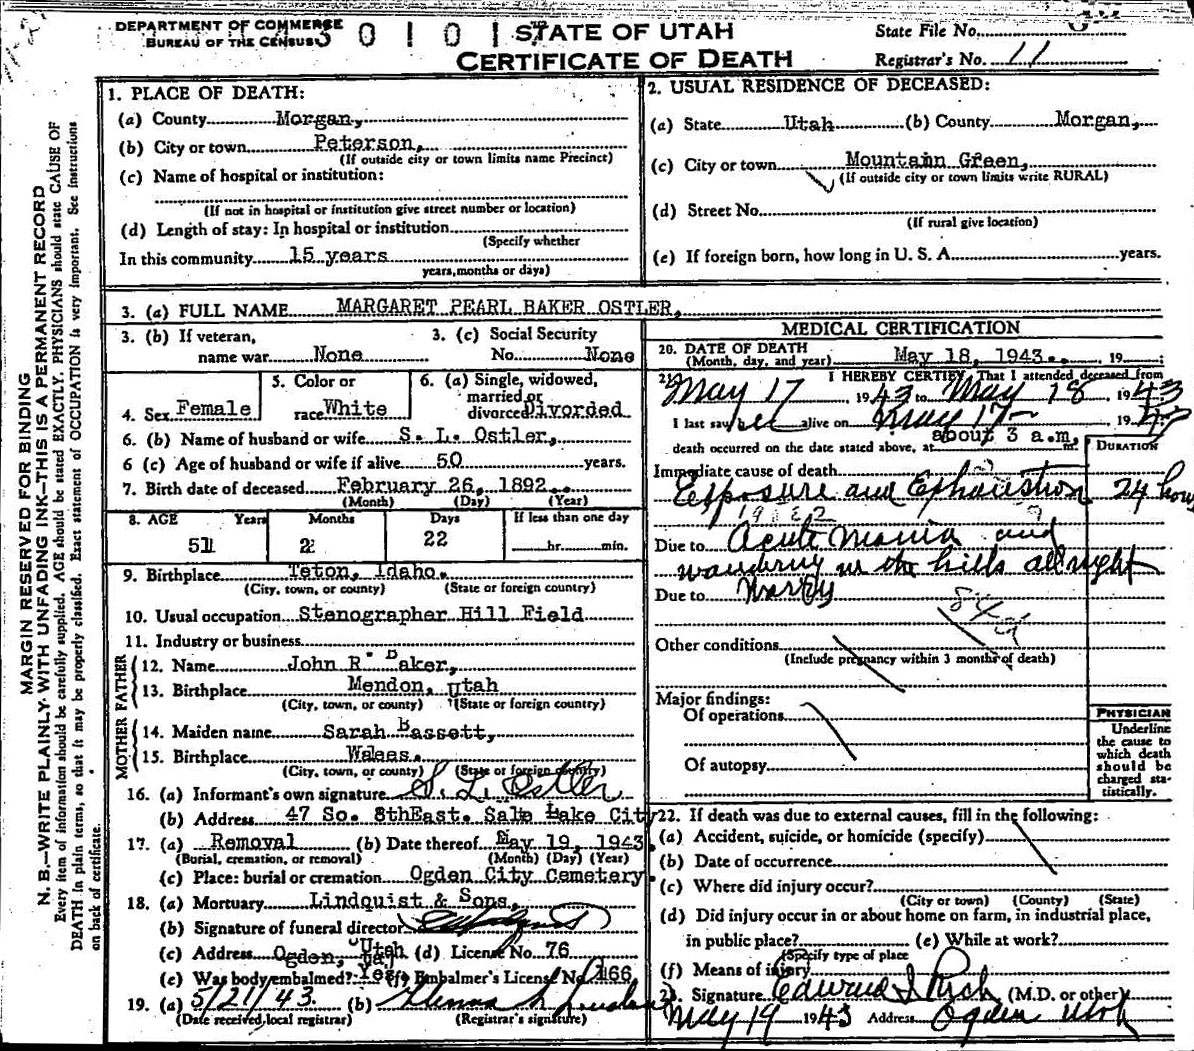 DEPARTMENT OF COMMERCE
BUREAU OF THE CENSUS
3 0 1 0 1
STATE OF UTAH
CERTIFICATE OF DEATH
State File No.
Registrar's No. 11
MARGIN RESERVED FOR BINDING
N. B.—WRITE PLAINLY WITH UNFADING INK—THIS IS A PERMANENT RECORD
Every item of information should be carefully supplied. AGE should be stated EXACTLY. PHYSICIANS should state CAUSE OF
DEATH in plain terms, so that it may be properly classified. Exact statement of OCCUPATION is very important. See Instructions
on back of certificate.
1. PLACE OF DEATH:
(a) County Morgan,
(b) City or town Peterson,
(If outside city or town limits name Precinct)
(c) Name of hospital or institution:
(If not in hospital or institution give street number or location)
(d) Length of stay: In hospital or institution
(Specify whether
In this community 15 years
years, months or days)
2. USUAL RESIDENCE OF DECEASED:
(a) State Utah (b) County Morgan,
(c) City or town Mountain Green,
(If outside city or town limits write RURAL)
(d) Street No.
(If rural give location)
(e) If foreign born, how long in U. S. A. years.
3. (a) FULL NAME MARGARET PEARL BAKER OSTLER,
3. (b) If veteran, 3. (c) Social Security
name war None No. None
4. Sex Female
5. Color or
race White
6. (a) Single, widowed,
married or
divorced Divorded
6. (b) Name of husband or wife S. L. Ostler,
6 (c) Age of husband or wife if alive 50 years.
7. Birth date of deceased February 26, 1892.
(Month) (Day) (Year)
8. AGE Years Months Days If less than one day
51 2 22 hr. min.
9. Birthplace Teton, Idaho.
(City, town, or county) (State or foreign country)
10. Usual occupation Stenographer Hill Field
11. Industry or business
FATHER
12. Name John R. Baker,
13. Birthplace Mendon, Utah
(City, town, or county) (State or foreign country)
MOTHER
14. Maiden name Sarah Bassett,
15. Birthplace Wales.
(City, town, or county) (State or foreign country)
16. (a) Informant's own signature S. L. Ostler
(b) Address 47 So. 8thEast. Salt Lake City
17. (a) Removal (b) Date thereof May 19, 1943.
(Burial, cremation, or removal) (Month) (Day) (Year)
(c) Place: burial or cremation Ogden City Cemetery.
18. (a) Mortuary Lindquist & Sons,
(b) Signature of funeral director
(c) Address Ogden, Utah (d) License No. 76
(e) Was body embalmed? Yes (f) Embalmer's License No. 166
19. (a) 5/21/43. (b)
(Date received local registrar) (Registrar's signature)
MEDICAL CERTIFICATION
20. DATE OF DEATH
(Month, day, and year) May 18, 1943. , 19 ;
21. I HEREBY CERTIFY, That I attended deceased from
May 17 1943 to May 18, 1943
I last saw her alive on May 17 - , 1943
death occurred on the date stated above, at about 3 a.m. m.
DURATION
Immediate cause of death
Exposure and Exhaustion 24 hours
Due to Acute Mania and
wandering in the hills all night
Due to
Other conditions
(Include pregnancy within 3 months of death)
Major findings:
Of operations
Of autopsy
PHYSICIAN
Underline
the cause to
which death
should be
charged sta-
tistically.
22. If death was due to external causes, fill in the following:
(a) Accident, suicide, or homicide (specify)
(b) Date of occurrence
(c) Where did injury occur?
(City or town) (County) (State)
(d) Did injury occur in or about home on farm, in industrial place,
in public place? (e) While at work?
(Specify type of place
(f) Means of injury
23. Signature Edward I Rich (M.D. or other)
May 19 1943 Address Ogden Utah